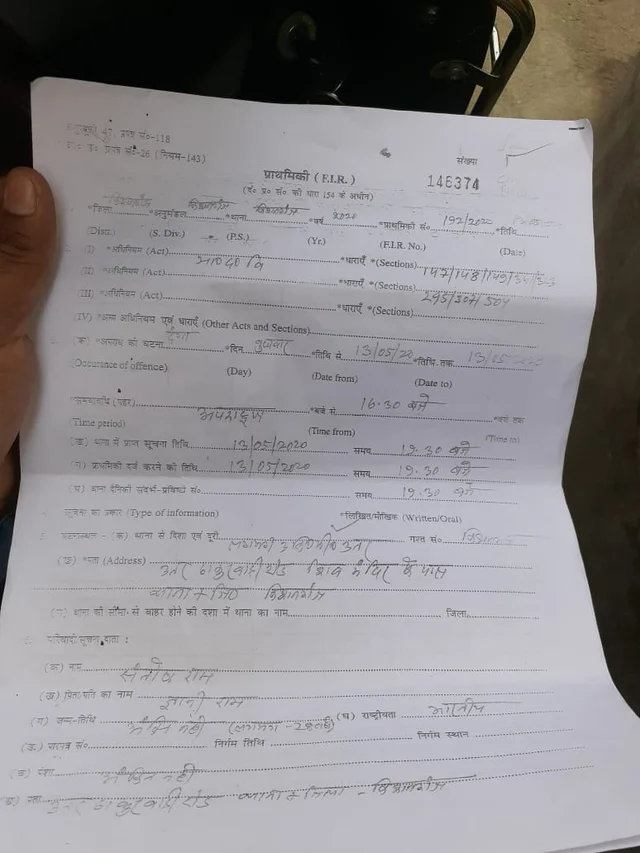 प्रपत्र सं०-118
प्रपत्र सं०-26 (नियम-143)
संख्या
प्राथमिकी (F.I.R.)
146374
(द० प्र० सं० की धारा 154 के अधीन)
किशनगंज किशनगंज किशनगंज 2020 192/2020
*जिला *अनुमंडल *थाना *वर्ष *प्राथमिकी सं० *तिथि
(Distt.) (S. Div.) (P.S.) (Yr.) (F.I.R. No.) (Date)
(I) *अधिनियम (Act) भा०द०वि *धाराएँ *(Sections) 147/148/149/341/323
(II) *अधिनियम (Act) *धाराएँ *(Sections) 295/307/504
(III) *अधिनियम (Act) *धाराएँ *(Sections)
(IV) *अन्य अधिनियम एवं धाराएँ (Other Acts and Sections)
(क) *अपराध की घटना *दिन बुधवार *तिथि से 13/05/20 *तिथि तक 13/05/2020
(Occurance of offence) (Day) (Date from) (Date to)
समयावधि (पहर) अपराह्न *बजे से 16.30 बजे *बजे तक
(Time period) (Time from) (Time to)
(ख) थाना में प्राप्त सूचना तिथि 13/05/2020 समय 19.30 बजे
(ग) प्राथमिकी दर्ज करने की तिथि 13/05/2020 समय 19.30 बजे
(घ) थाना दैनिकी संदर्भ-प्रविष्टि सं० समय 19.30 बजे
सूचना का प्रकार (Type of information) *लिखित/मौखिक (Written/Oral)
घटनास्थल - (क) थाना से दिशा एवं दूरी लगभग उत्तर गश्त सं०
(ख) *पता (Address) उत्तर ठाकुरबाड़ी रोड शिव मंदिर के पास
थाना + जिला किशनगंज
(ग) थाना की सीमा से बाहर होने की दशा में थाना का नाम जिला
परिवादी/सूचना दाता :
(क) नाम संतोष राम
(ख) पिता/पति का नाम ज्ञानी राम
(ग) जन्म-तिथि अंकित नहीं (लगभग - 28 वर्ष) (घ) राष्ट्रीयता भारतीय
(ङ) पारपत्र सं० निर्गम तिथि निर्गम स्थान
(च) पेशा अंकित नहीं
(छ) पता उत्तर ठाकुरबाड़ी रोड थाना + जिला - किशनगंज